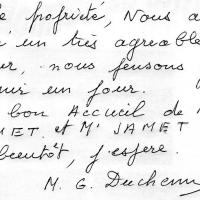 e pofriété, Nous a
un très agreable
ur, nous pensons
nir un jour.
bon Accueil de
MET. et Mr JAMET
bientôt, j'espère.
M. G. Duchemi